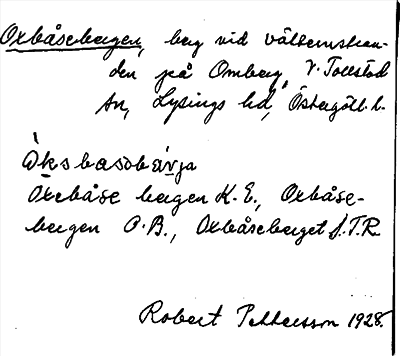 Oxbåsebergen, berg vid Vätternstran-
den på Omberg, V. Tollstad
sn, Lysings hd, Östergötl. l.
Oxbåse bergen K. E., Oxbåse-
bergen O.B., Oxbåseberget J.T.R.
Robert Pettersson 1928.